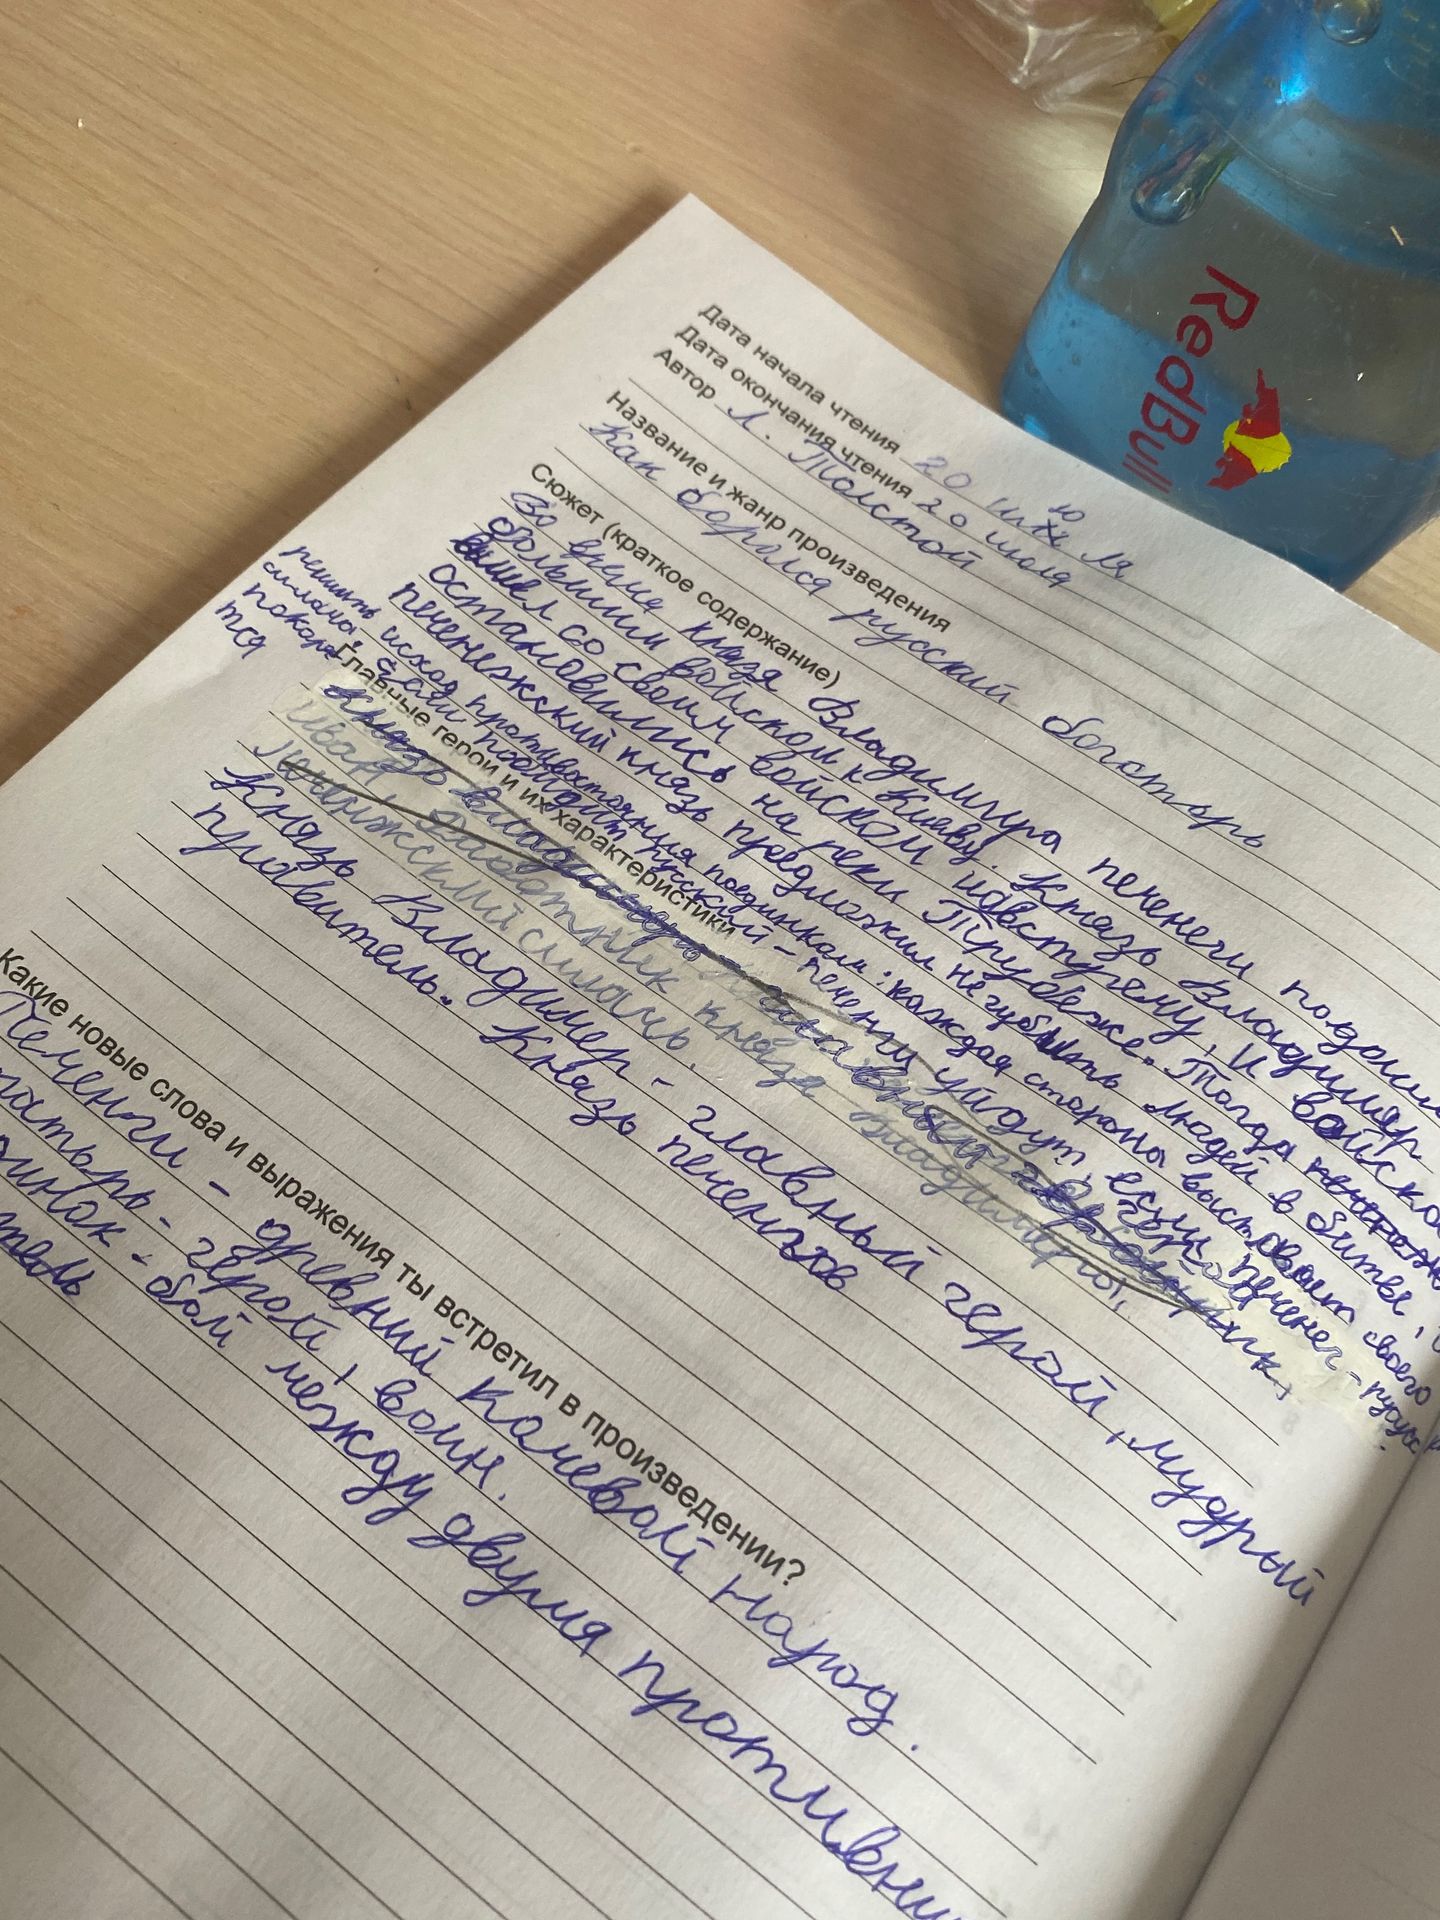 Дата начала чтения 20 июля
Дата окончания чтения 20 июля
Автор Л. Толстой
Название и жанр произведения
Как боролся русский богатырь
Сюжет (краткое содержание)
Во время князя Владимура печенеги подошли
с большим войском к Киеву. Князь Владимер
вышел со своим войском навстречу, и войско
остановились на реки Трубеже. Тогда
печенежский князь предложил не губить людей в битве,
решить исход противостояния поединком: каждая сторона выставит своего
силача. Если победит русский - печенеги уйдут, если печенег - русск
покоря
тся
Главные герои и их характеристики
Князь Владимер
Иван, работник князя Владимира,
силачь
Князь Владимер - главный герой, мудрый
правитель. Князь печенгов
Какие новые слова и выражения ты встретил в произведении?
Печенги - древний качевой народ.
атырь - герой, воин.
динок - бой между двумя противни
тель
RedBull